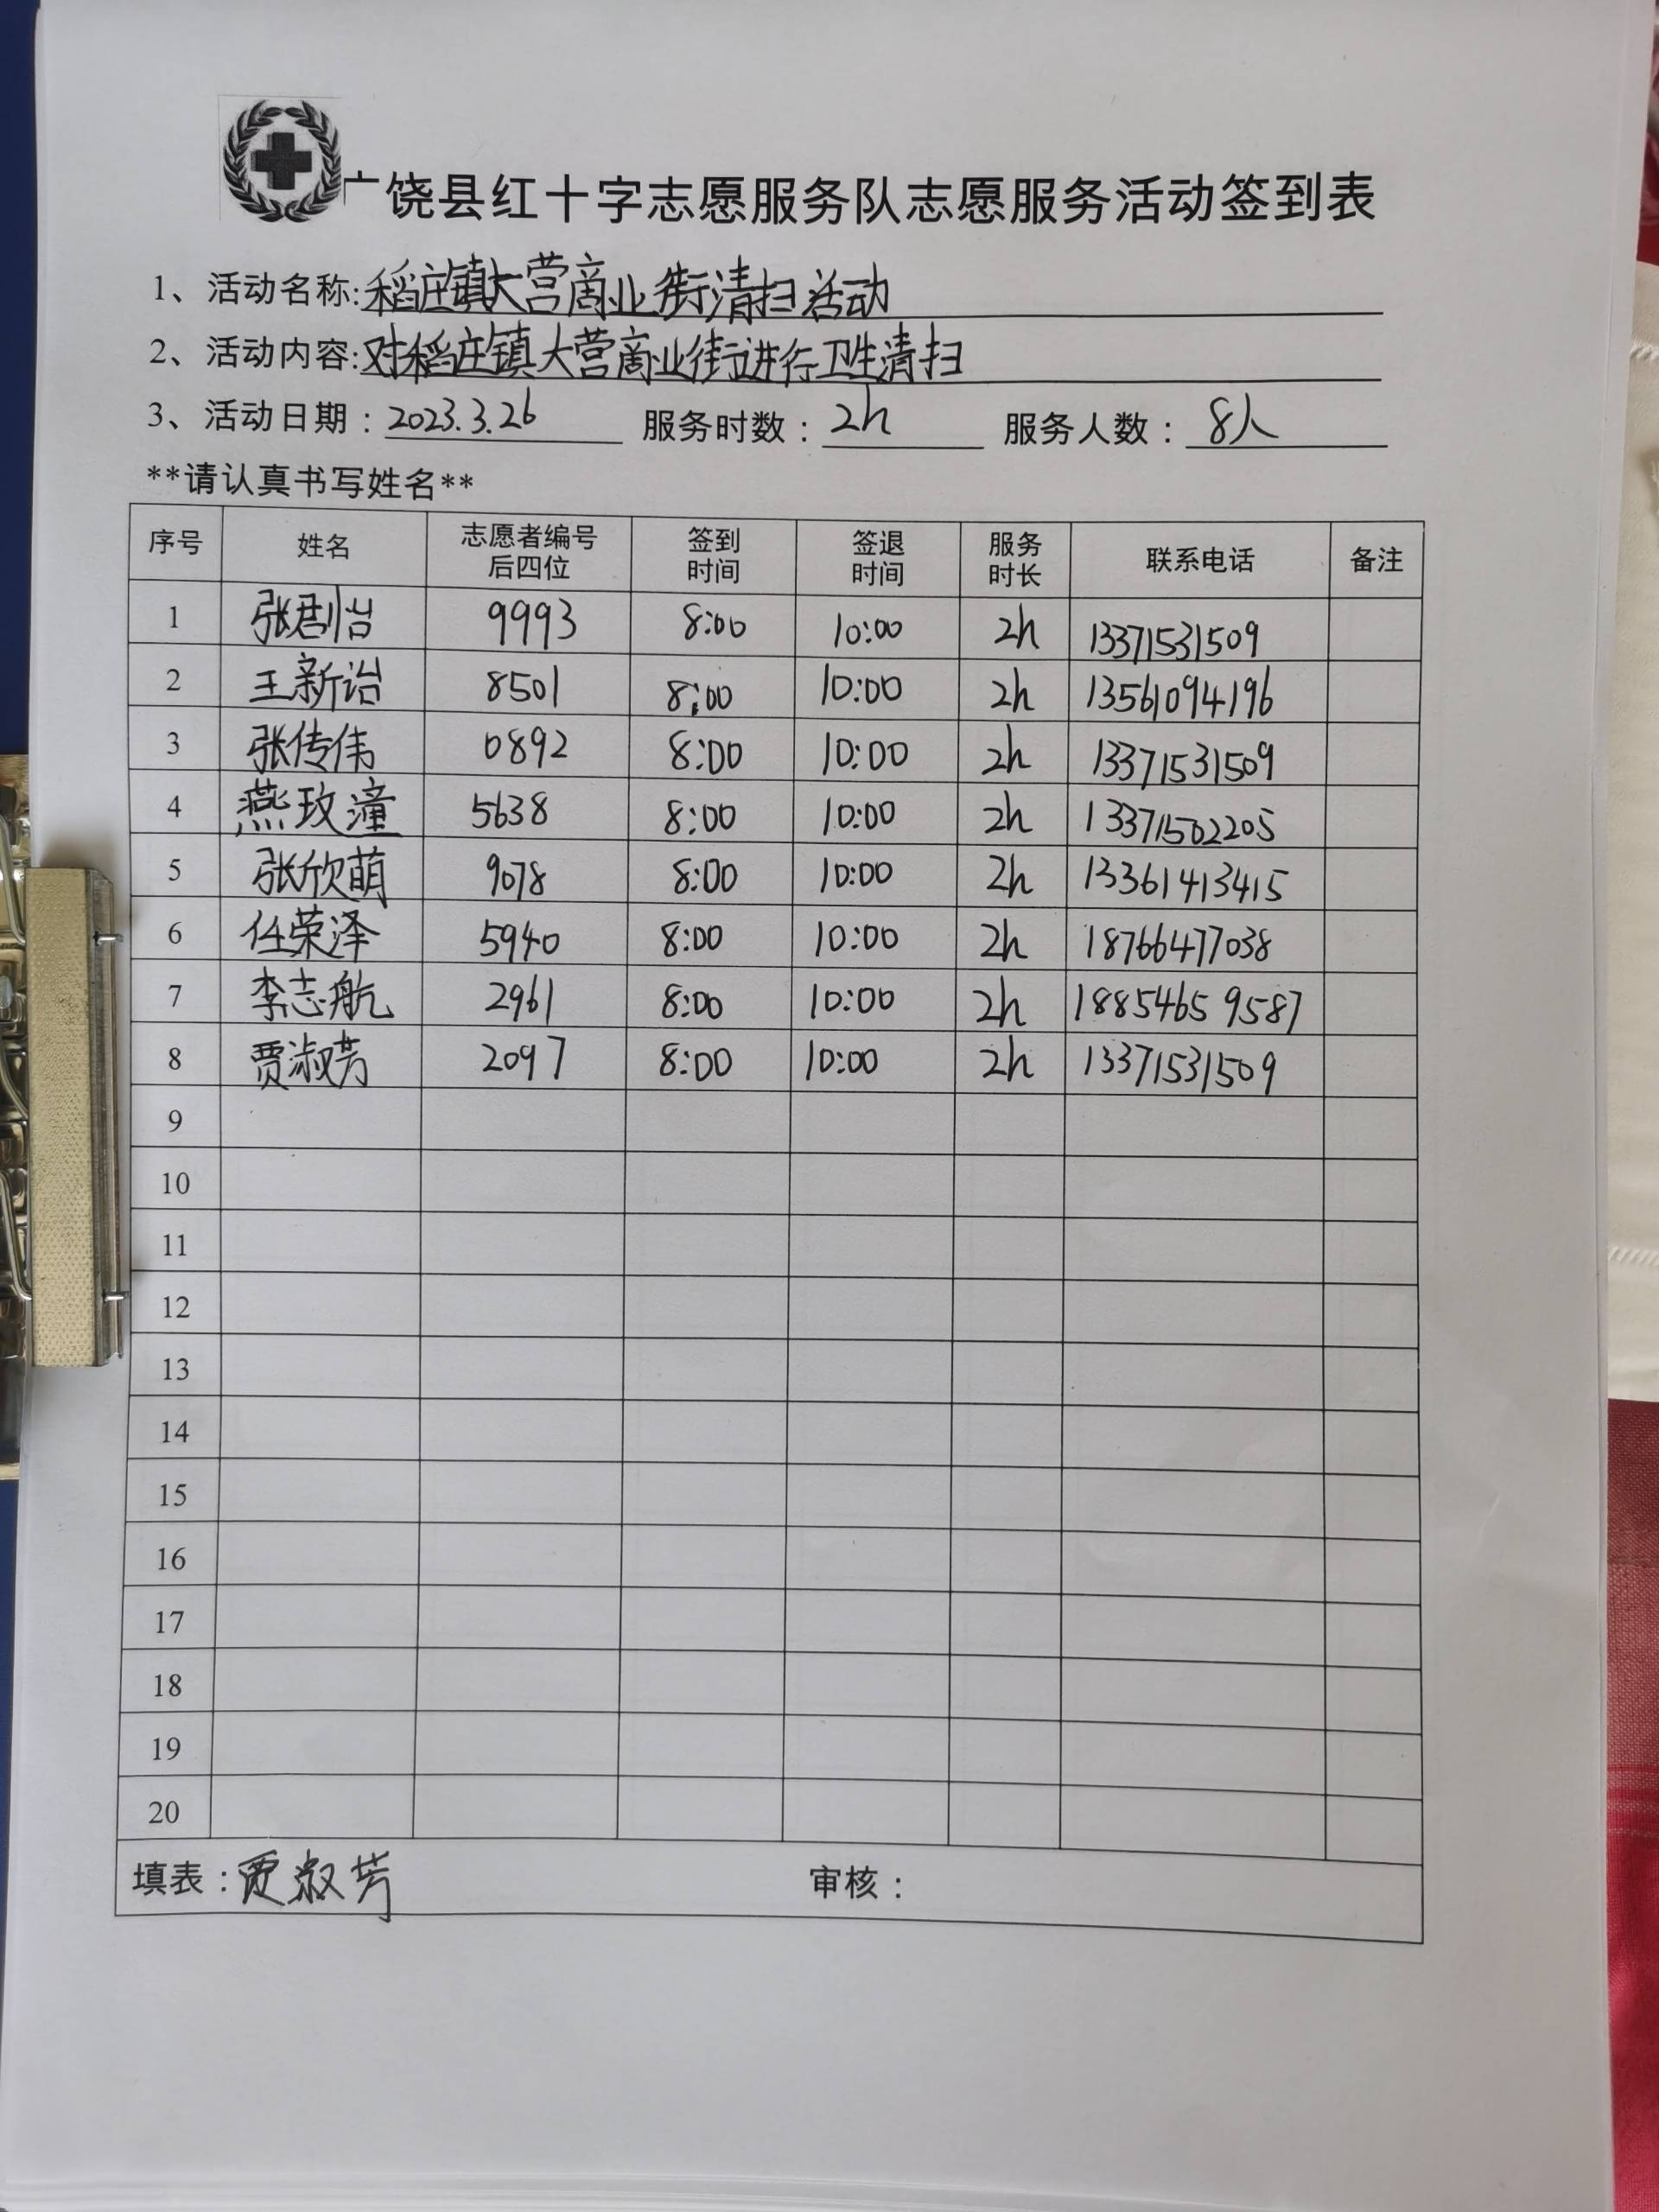 广饶县红十字志愿服务队志愿服务活动签到表
1、活动名称:稻庄镇大营商业街清扫活动
2、活动内容:对稻庄镇大营商业街进行卫生清扫
3、活动日期：2023.3.26 服务时数：2h 服务人数：8人
**请认真书写姓名**
序号 姓名 志愿者编号后四位 签到时间 签退时间 服务时长 联系电话 备注
1 张剧怡 9993 8:00 10:00 2h 13371531509
2 王新诒 8501 8:00 10:00 2h 13561094196
3 张传伟 0892 8:00 10:00 2h 13371531509
4 燕玫潼 5638 8:00 10:00 2h 13371502205
5 张欣萌 9078 8:00 10:00 2h 13361413415
6 任荣泽 5940 8:00 10:00 2h 18766477038
7 李志航 2961 8:00 10:00 2h 18854659587
8 贾淑芳 2097 8:00 10:00 2h 13371531509
9
10
11
12
13
14
15
16
17
18
19
20
填表：贾淑芳 审核：